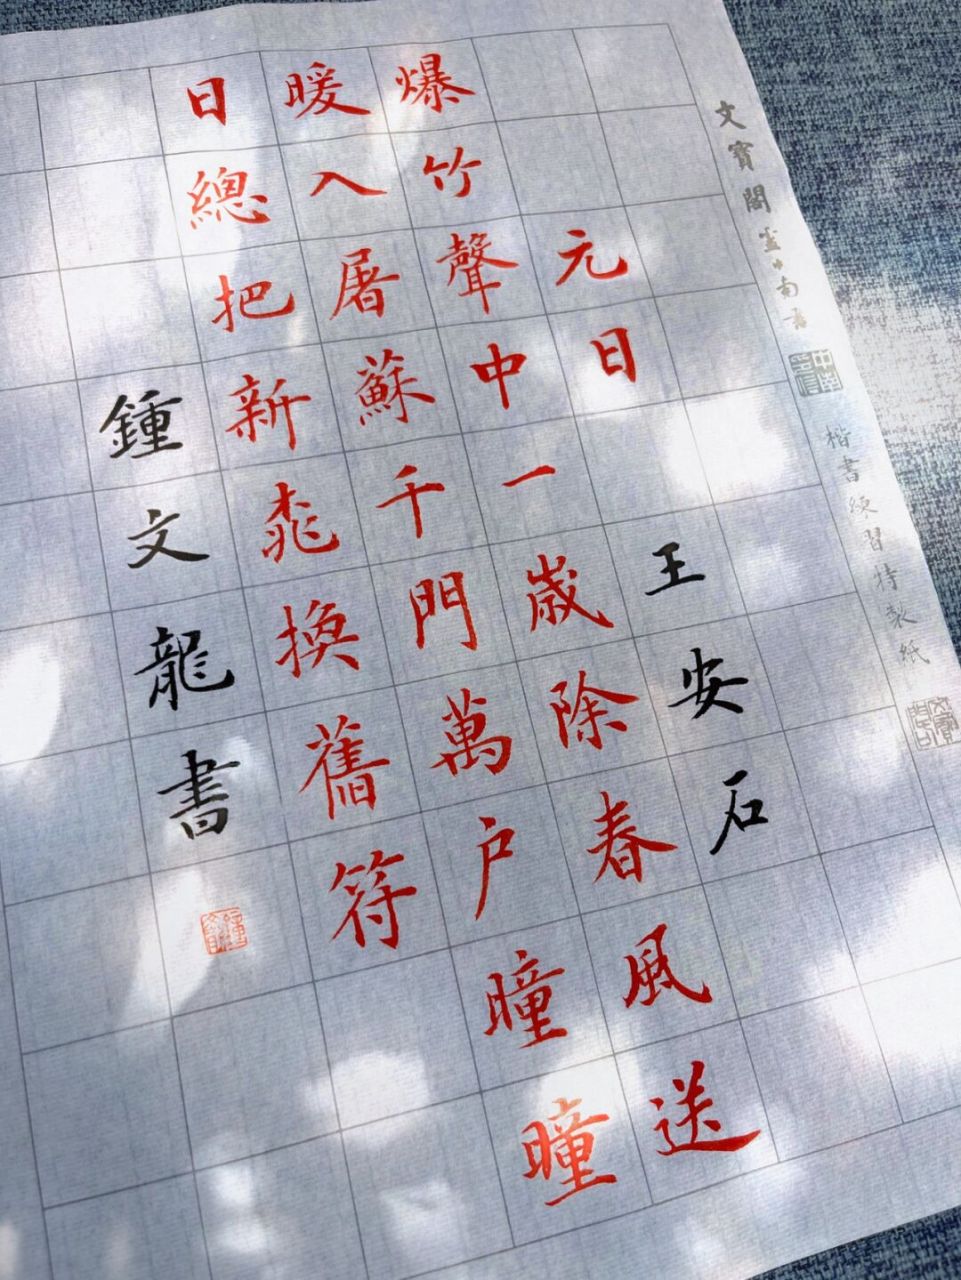 文寶閣
楷書練習特製紙
元日 王安石
爆竹聲中一嵗除春風送
暖入屠蘇千門萬户曈曈
日總把新桃換舊符
鍾文龍書